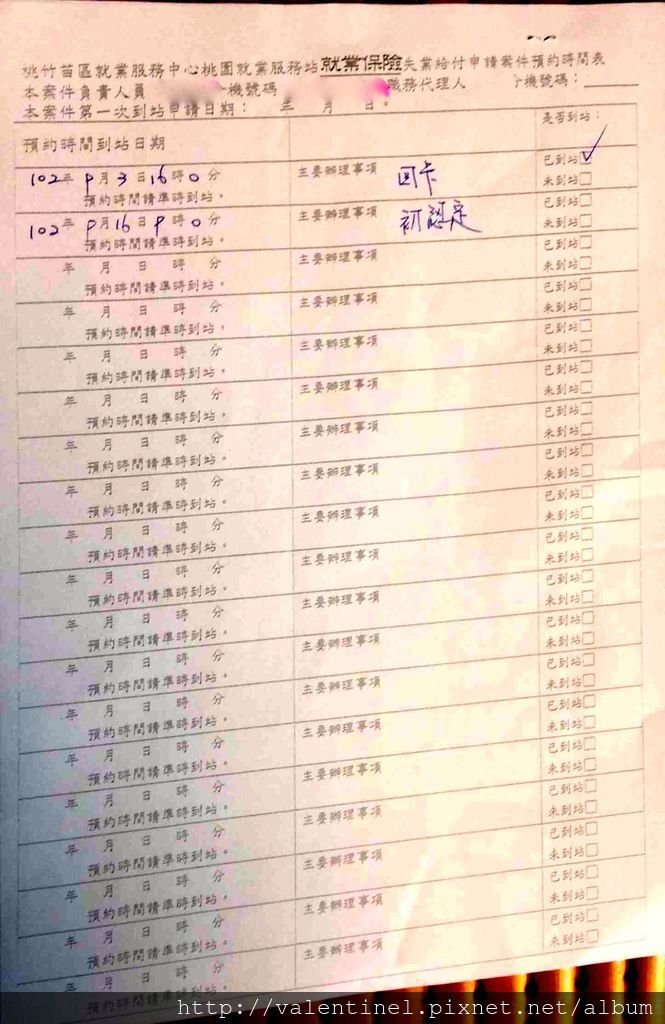 桃竹苗區就業服務中心桃園就業服務站就業保險失業給付申請案件預約時間表
本案件負責人員 機號碼 職務代理人 機號碼：
本案件第一次到站申請日期： 年 月 日。
預約時間到站日期 是否到站：
102年 9月3日16時0分 主要辦理事項 回卡 已到站☑
預約時間請準時到站。 未到站□
102年 9月16日9時0分 主要辦理事項 初認定 已到站□
預約時間請準時到站。 未到站□
年 月 日 時 分 主要辦理事項 已到站□
預約時間請準時到站。 未到站□
年 月 日 時 分 主要辦理事項 已到站□
預約時間請準時到站。 未到站□
年 月 日 時 分 主要辦理事項 已到站□
預約時間請準時到站。 未到站□
年 月 日 時 分 主要辦理事項 已到站□
預約時間請準時到站。 未到站□
年 月 日 時 分 主要辦理事項 已到站□
預約時間請準時到站。 未到站□
年 月 日 時 分 主要辦理事項 已到站□
預約時間請準時到站。 未到站□
年 月 日 時 分 主要辦理事項 已到站□
預約時間請準時到站。 未到站□
年 月 日 時 分 主要辦理事項 已到站□
預約時間請準時到站。 未到站□
年 月 日 時 分 主要辦理事項 已到站□
預約時間請準時到站。 未到站□
年 月 日 時 分 主要辦理事項 已到站□
預約時間請準時到站。 未到站□
年 月 日 時 分 主要辦理事項 已到站□
預約時間請準時到站。 未到站□
年 月 日 時 分 主要辦理事項 已到站□
預約時間請準時到站。 未到站□
年 月 日 時 分 主要辦理事項 已到站□
預約時間請準時到站。 未到站□
年 月 日 時 分 主要辦理事項 已到站□
預約時間請準時到站。 未到站□
年 月 日 時 分 主要辦理事項 已到站□
預約時間請準時到站。 未到站□
年 月 日 時 分 主要辦理事項 已到站□
預約時間請準時到站。 未到站□
年 月 日 時 分 主要辦理事項 已到站□
預約時間請準時到站。 未到站□
http://valentinel.pixnet.net/album